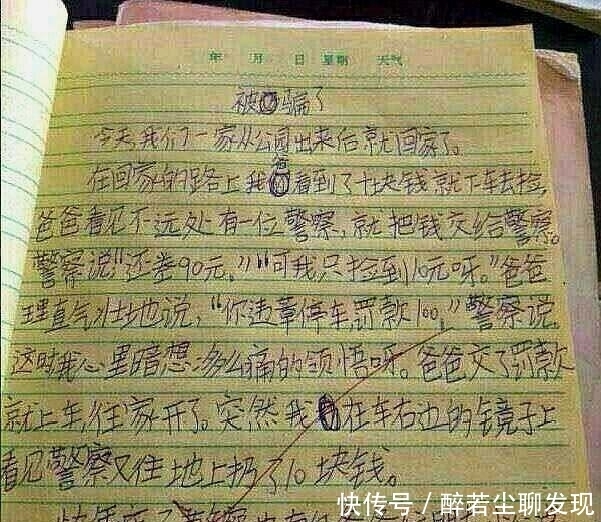 年 月 日 星期 天气
被骗了
今天,我们一家从公园出来后就回家了。
在回家的路上我爸看到了十块钱就下车去捡,
爸爸看见不远处有一位警察,就把钱交给警察。
警察说“还差90元,”“可我只捡到10元呀。”爸爸
理直气壮地说,“你违章停车,罚款100,”警察说,
这时我心里暗想:多么痛的领悟呀。爸爸交了罚款
就上车,往家开了。突然我在车右边的镜子上
看见警察又往地上扔了10块钱。
快传号/醉若尘聊发现